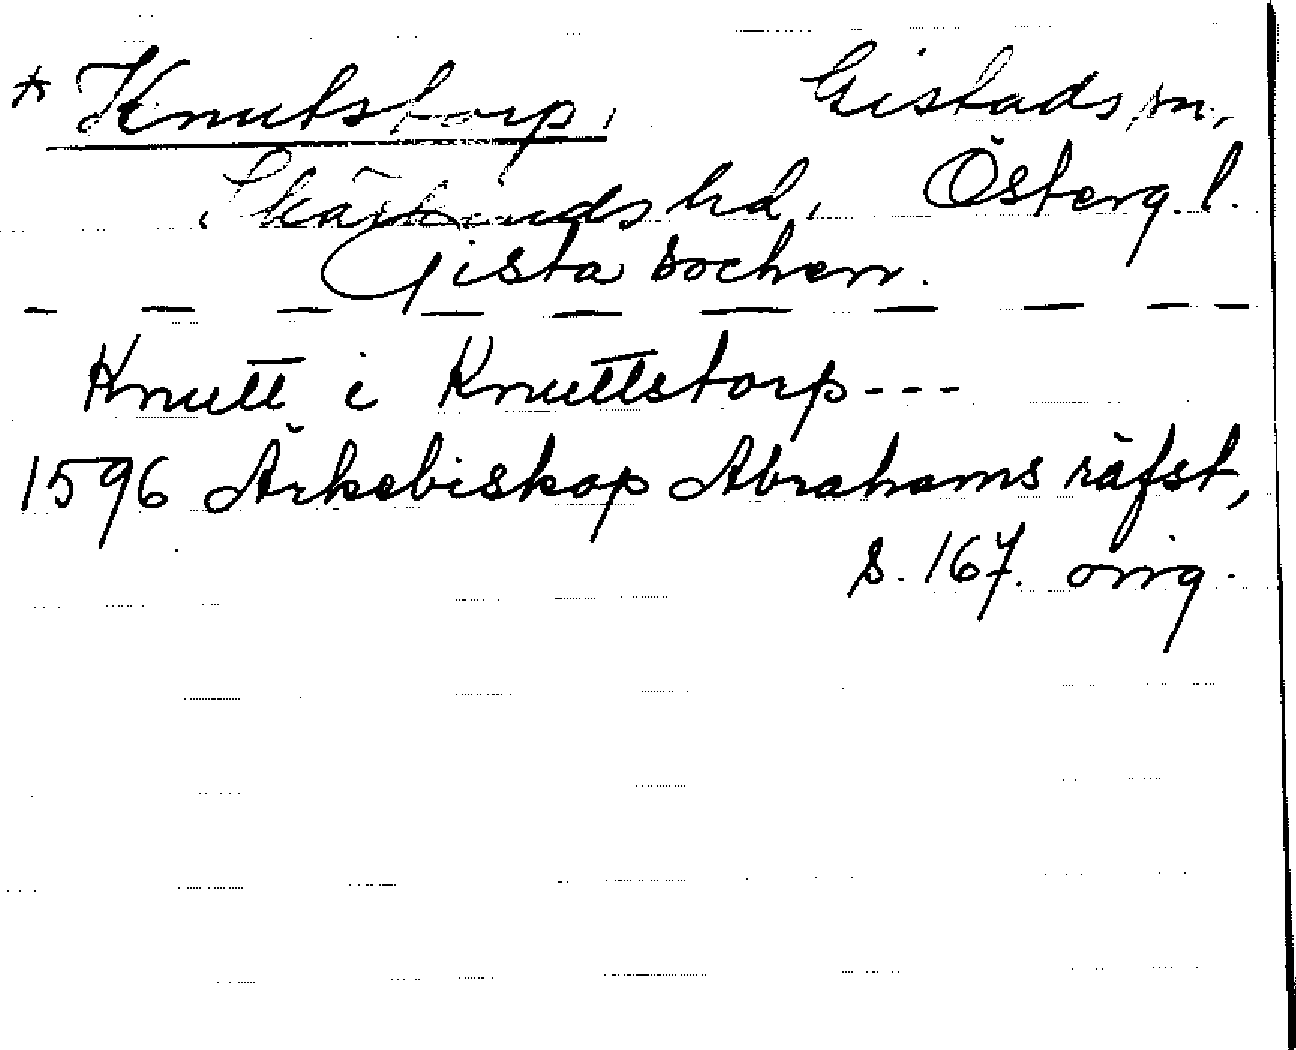 * Knutstorp, Gistads sn,
Skärkinds hd, Österg. l.
Gista sochenn.
Knutt i Knuttstorp---
1596 Ärkebiskop Abrahams räfst,
s. 167. orig.